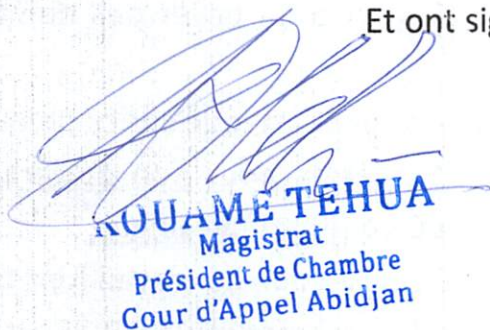 Et ont sig
KOUAME TEHUA
Magistrat
Président de Chambre
Cour d'Appel Abidjan